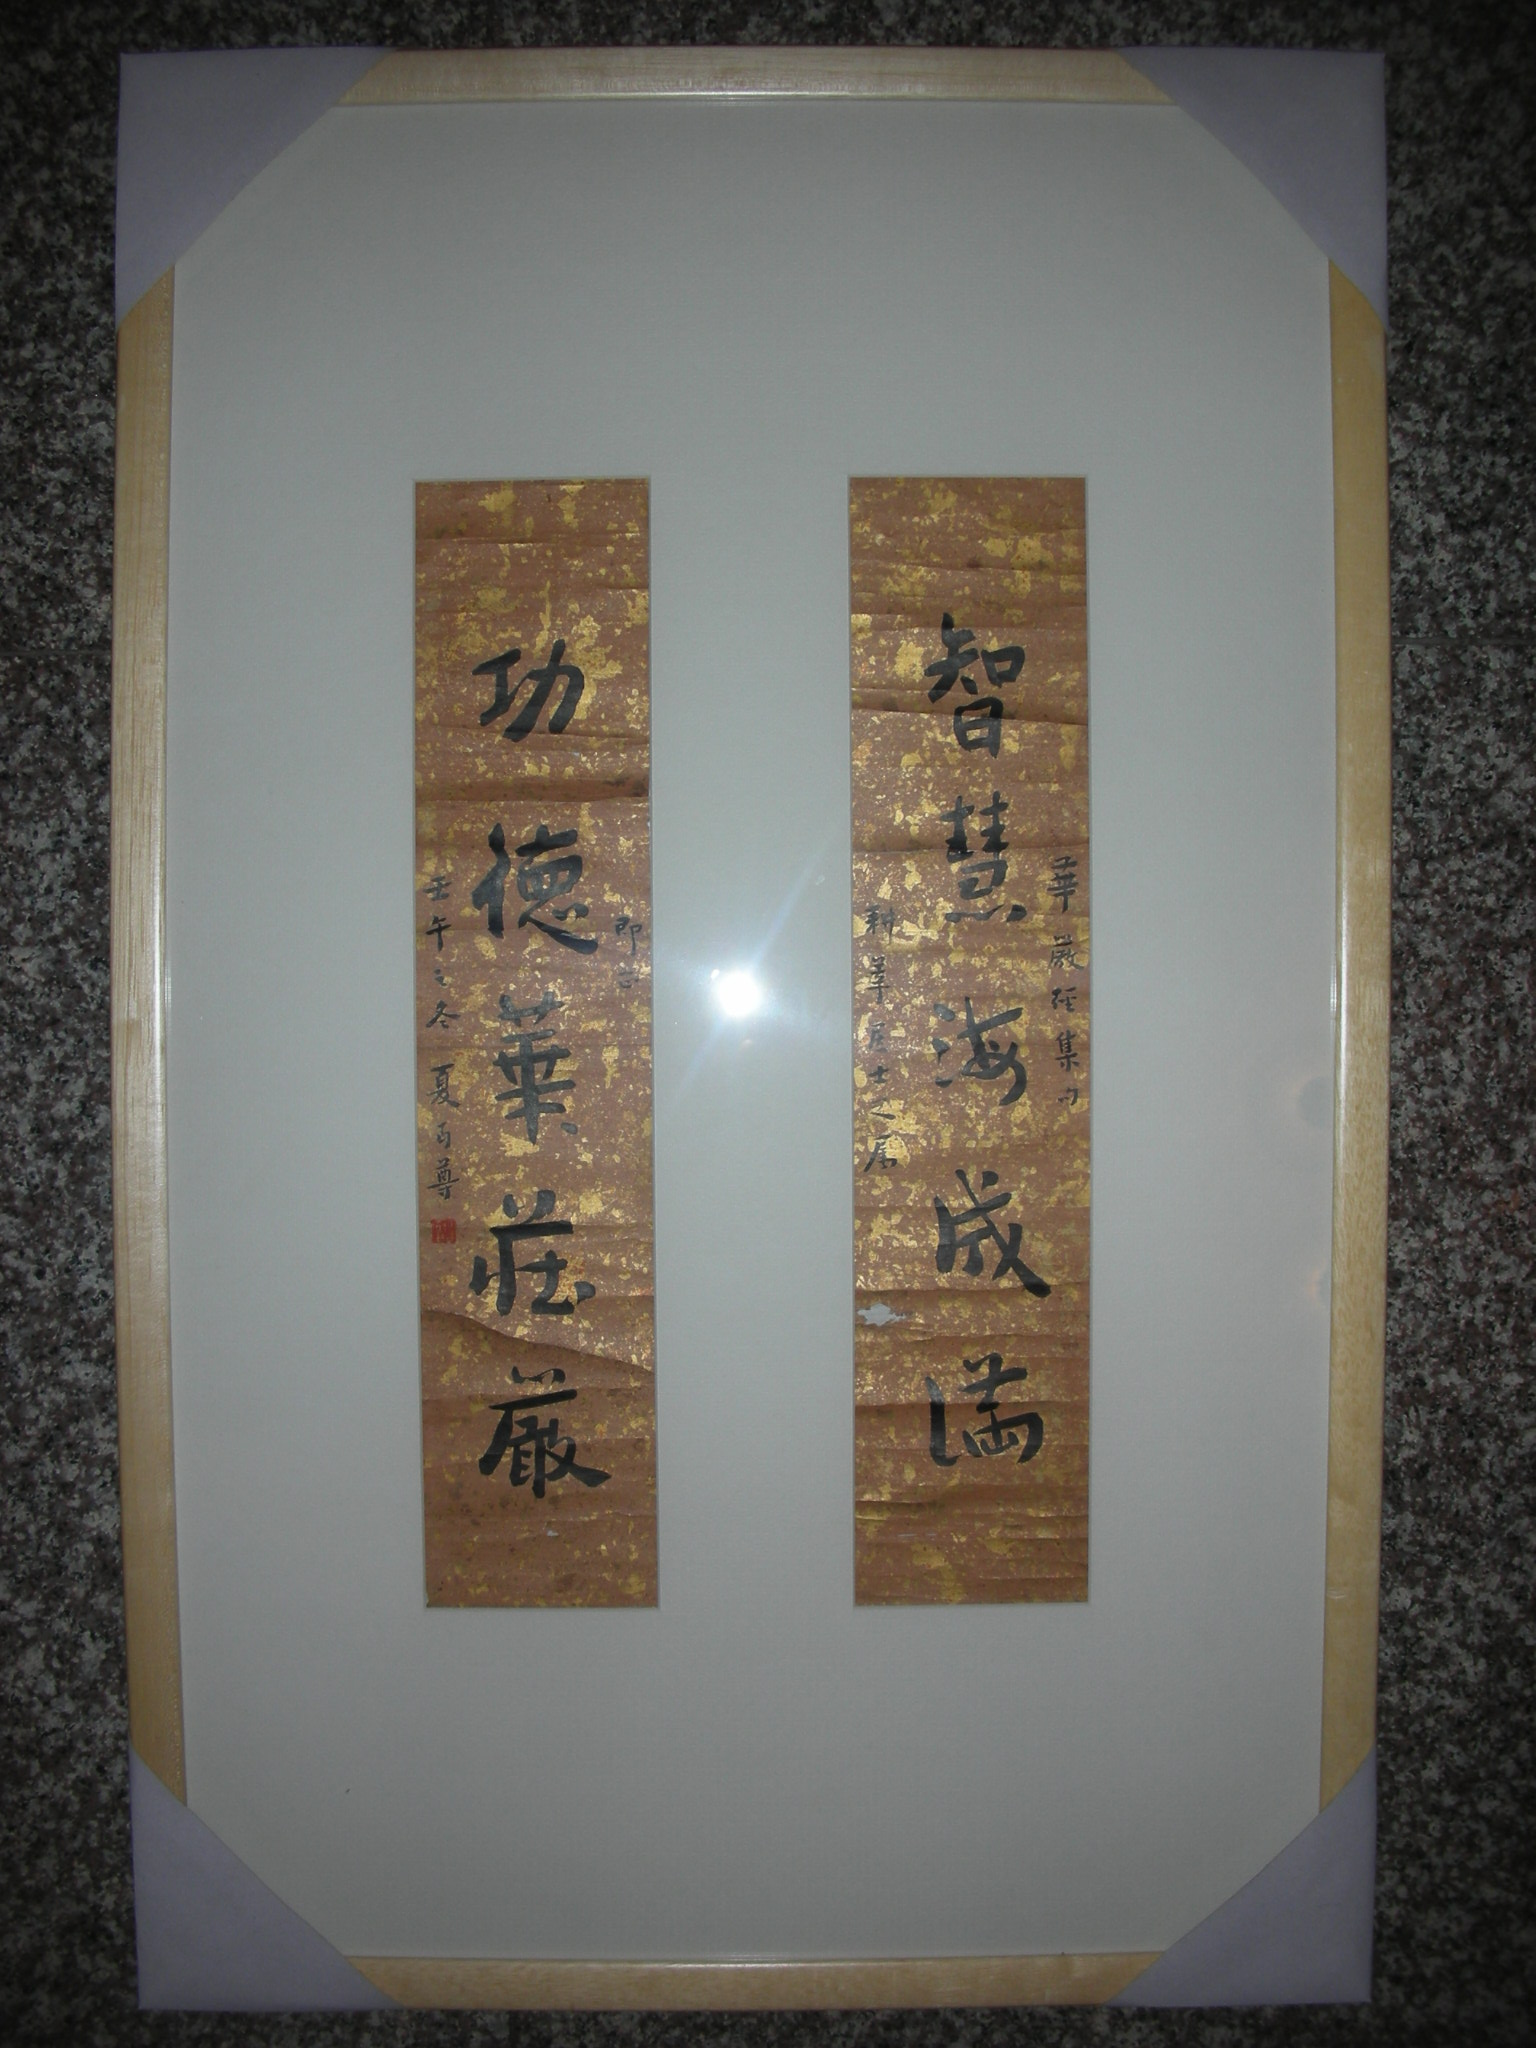 華嚴經集句
智慧海成満
耕莘居士之属
即正
功德華莊嚴
壬午之冬 夏丏尊